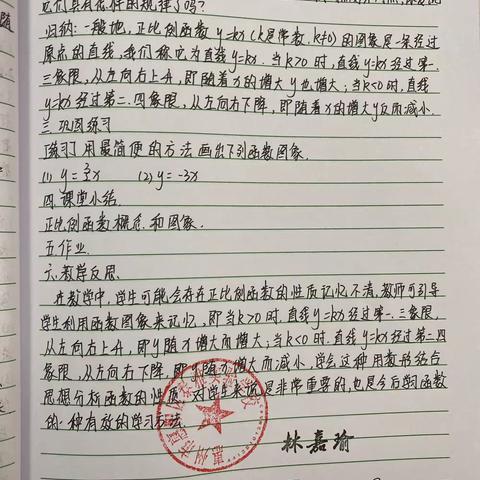 它们具有怎样的规律了吗?
归纳:一般地,正比例函数 y=kx (k是常数,k≠0) 的图象是一条经过
原点的直线,我们称它为直线y=kx.当k>0时,直线y=kx经过第一、
三象限,从左向右上升,即随着x的增大y也增大;当k<0时,直线
y=kx经过第二、四象限,从左向右下降,即随着x的增大y反而减小.
三.巩固练习
[练习]用最简便的方法画出下列函数图象.
(1) y=x (2) y=-3x
四.课堂小结.
正比例函数概念和图象.
五.作业.
六.教学反思.
在教学中,学生可能会存在正比例函数的性质记忆不清,教师可引导
学生利用函数图象来记忆,即当k>0时,直线y=kx经过第一、三象限,
从左向右上升,即y随x增大而增大;当k<0时,直线y=kx经过第二、四
象限,从左向右下降,即y随x增大而减小,学会这种用数形结合
思想分析函数的性质,对学生来说是非常重要的,也是今后学习函数
的一种有效的学习方法.
林嘉瑜
惠州市
学校